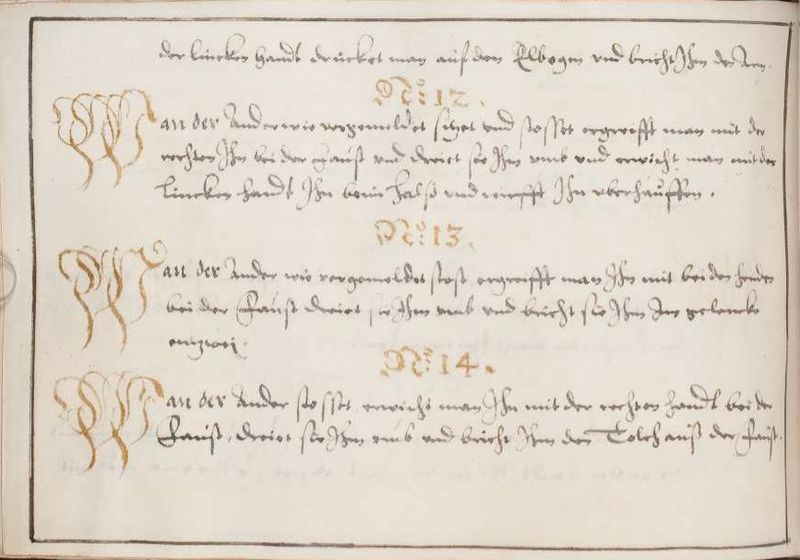 der lincken handt drucket man auf den Elbogen vnd bricht Ihm den Arm.
No: 12.
Wan der Ander wie vorgemeldet sitzet vnd stosset ergreifft man mit der
rechten Ihn bei der Faust vnd dreiet sie Ihm vmb vnd erwischt man mit der
lincken handt Ihn beim halß vnd Ihn vberhauffen.
No: 13.
Wan der Ander wie vorgemeldet stost ergreifft man Ihn mit beiden henden
bei der Faust dreiet sie Ihm vmb vnd bricht sie Ihm Im gelencke
entzwei.
No: 14.
Wan der Ander stosset, erwischt man Ihn mit der rechten handt bei der
Faust, dreiet sie Ihm vmb vnd bricht Ihm den Tolch auß der Faust.